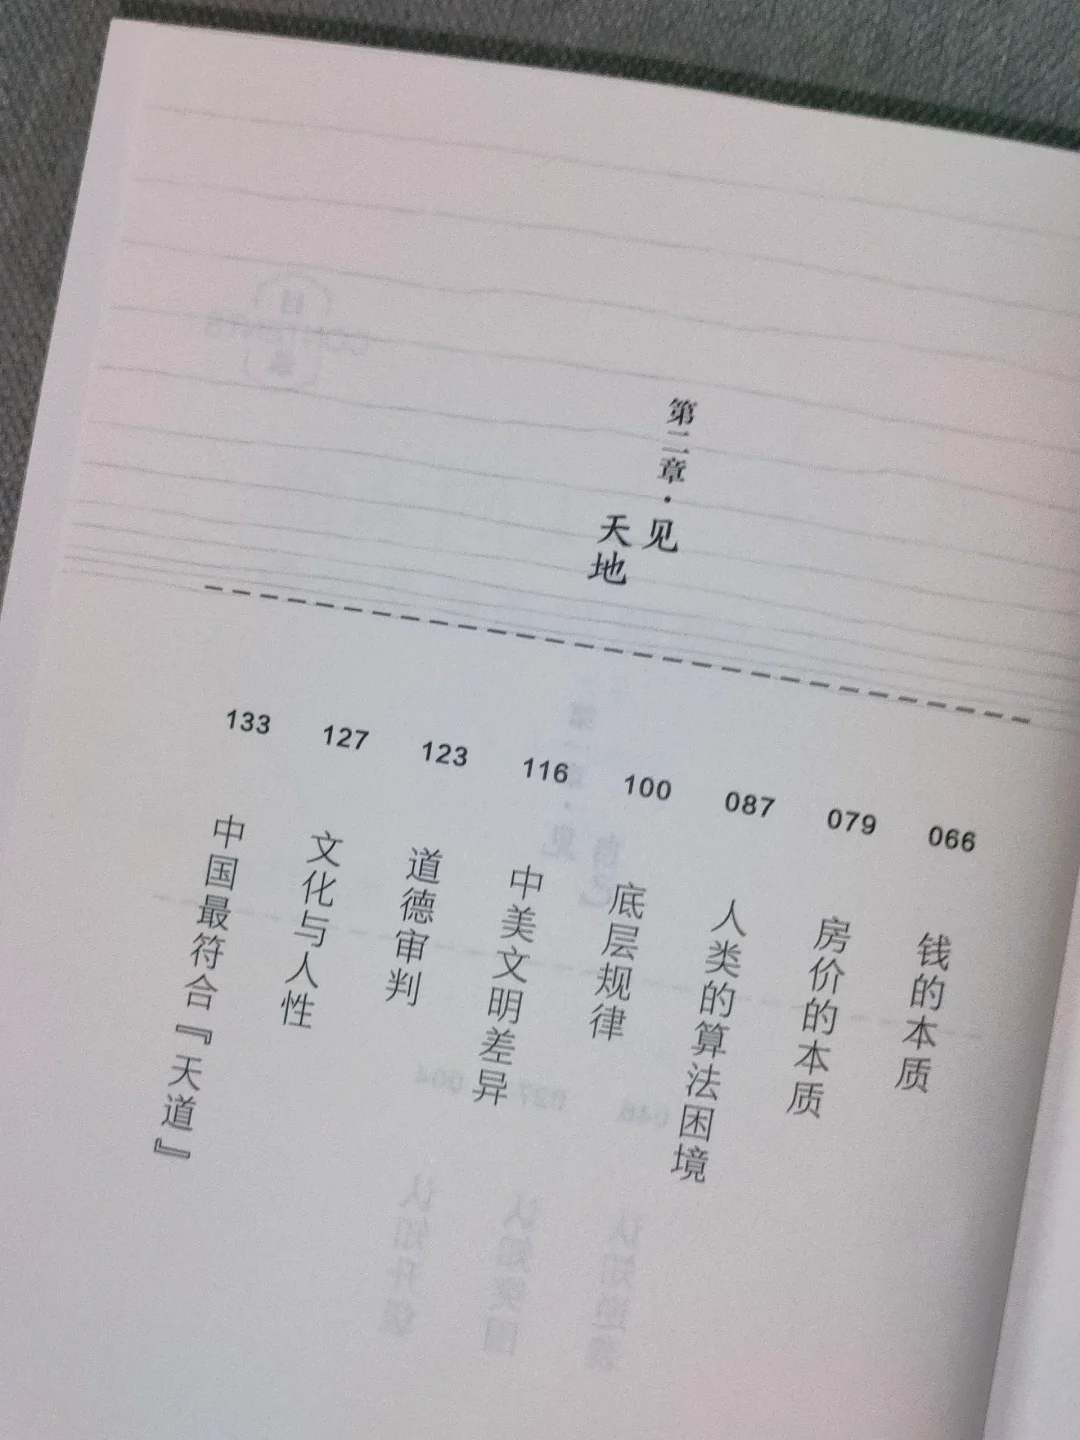 第二章·见
天地
066 钱的本质
079 房价的本质
087 人类的算法困境
100 底层规律
116 中美文明差异
123 道德审判
127 文化与人性
133 中国最符合『天道』